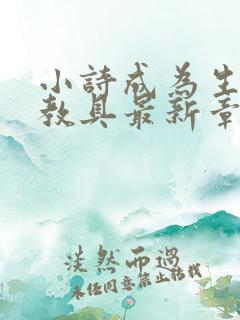 小詩成為生
教具最新章
淡然而過
未经同意禁止转载